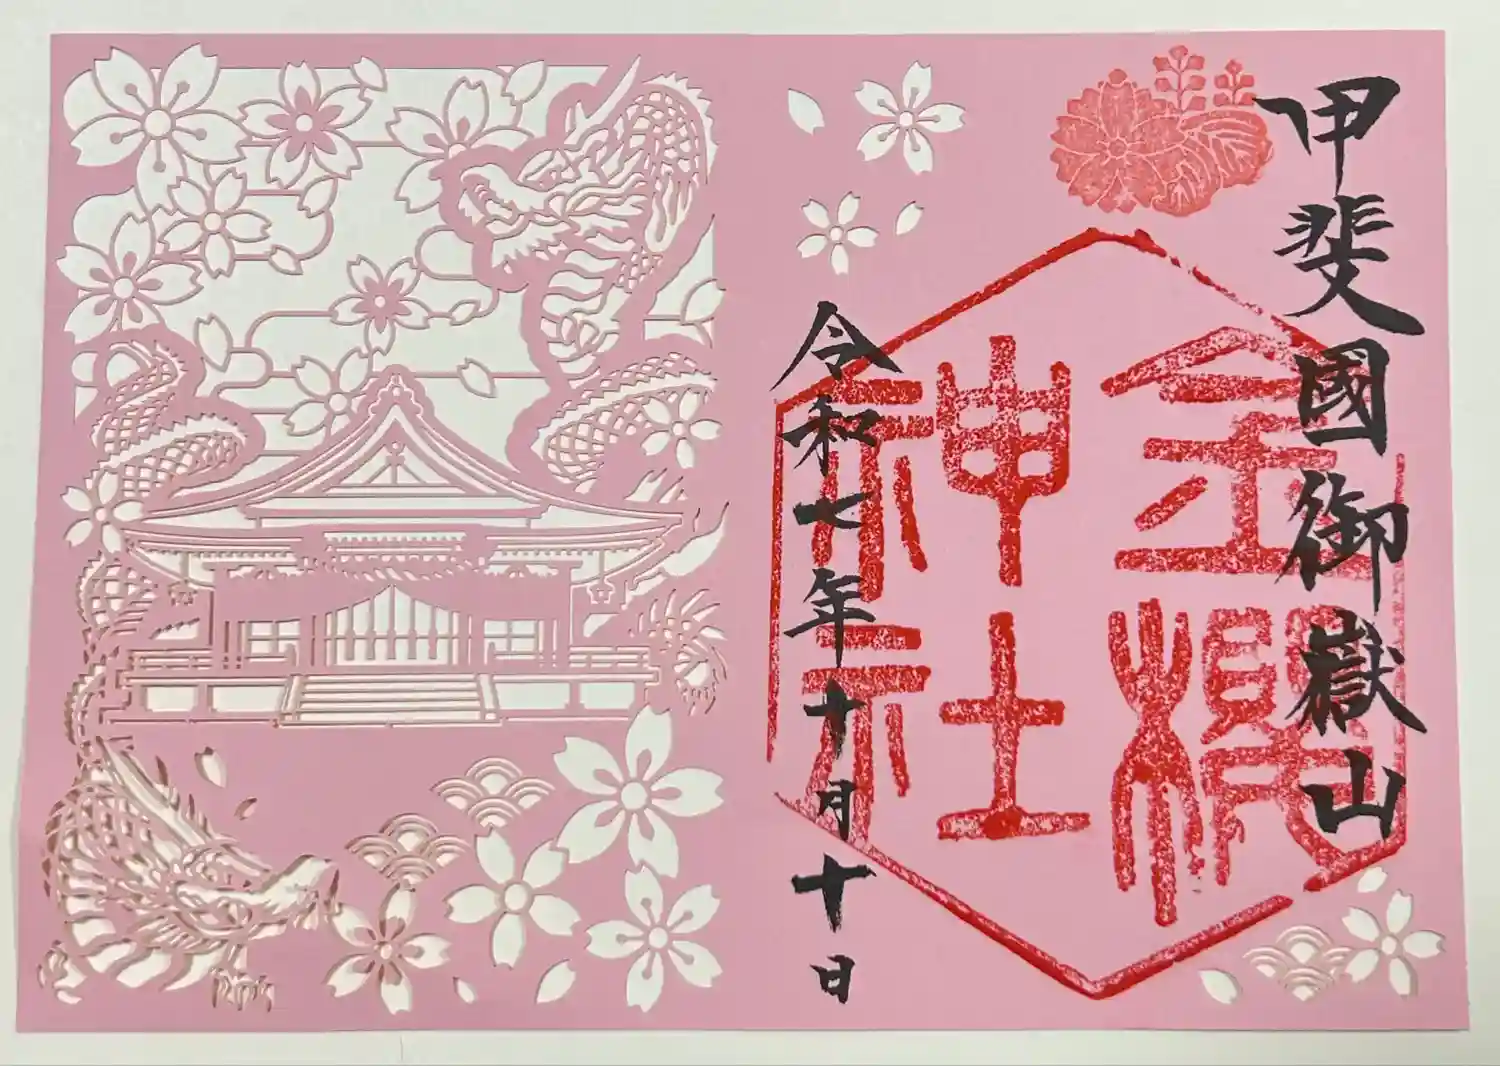 甲斐國御嶽山
金櫻
神社
神社
令和七年十月十日